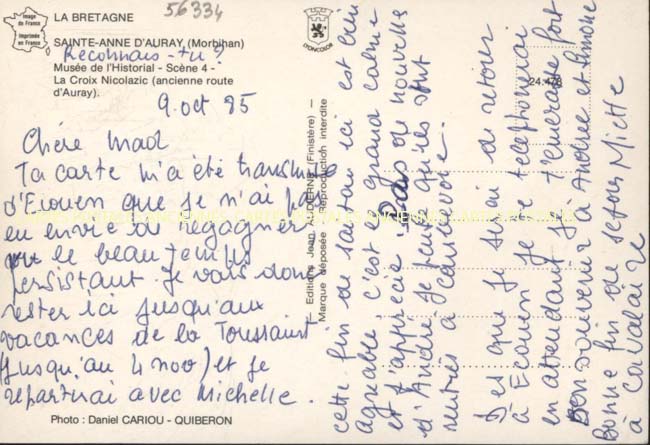 Image
de France
Imprimée
en France
LA BRETAGNE
56334
SAINTE-ANNE D'AURAY (Morbihan)
Reconnais-tu ?
Musée de l'Historial - Scène 4 -
La Croix Nicolazic (ancienne route
d'Auray).
9 oct 85
Chère Mad
Ta carte m'a été transmise
d'Ecouen que je n'ai pas
eu envie de regagner
le beau temps
persistant. Je vais donc
rester ici jusqu'aux
vacances de la Toussaint
(jusqu'au 4 nov) et je
repartirai avec Michelle.
Photo : Daniel CARIOU - QUIBERON
D'ONCOLOR
Editions Jean AUDIERNE (Finistère) —
Marque déposée — Reproduction interdite
24.478
cette fin de saison ici est bien
agréable c'est le grand calme
et j'apprécie. Pas de nouvelles
d'André je pense qu'ils sont
rentrés à
Dès que je serai de retour
à Ecouen je te téléphonerai
en attendant je t'embrasse fort
Bon souvenir à Andrée et Simone
Bonne fin de séjour
à Cavalaire